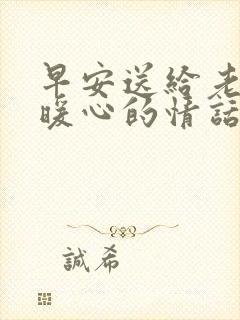 早安送給老
暖心的情話
誠希